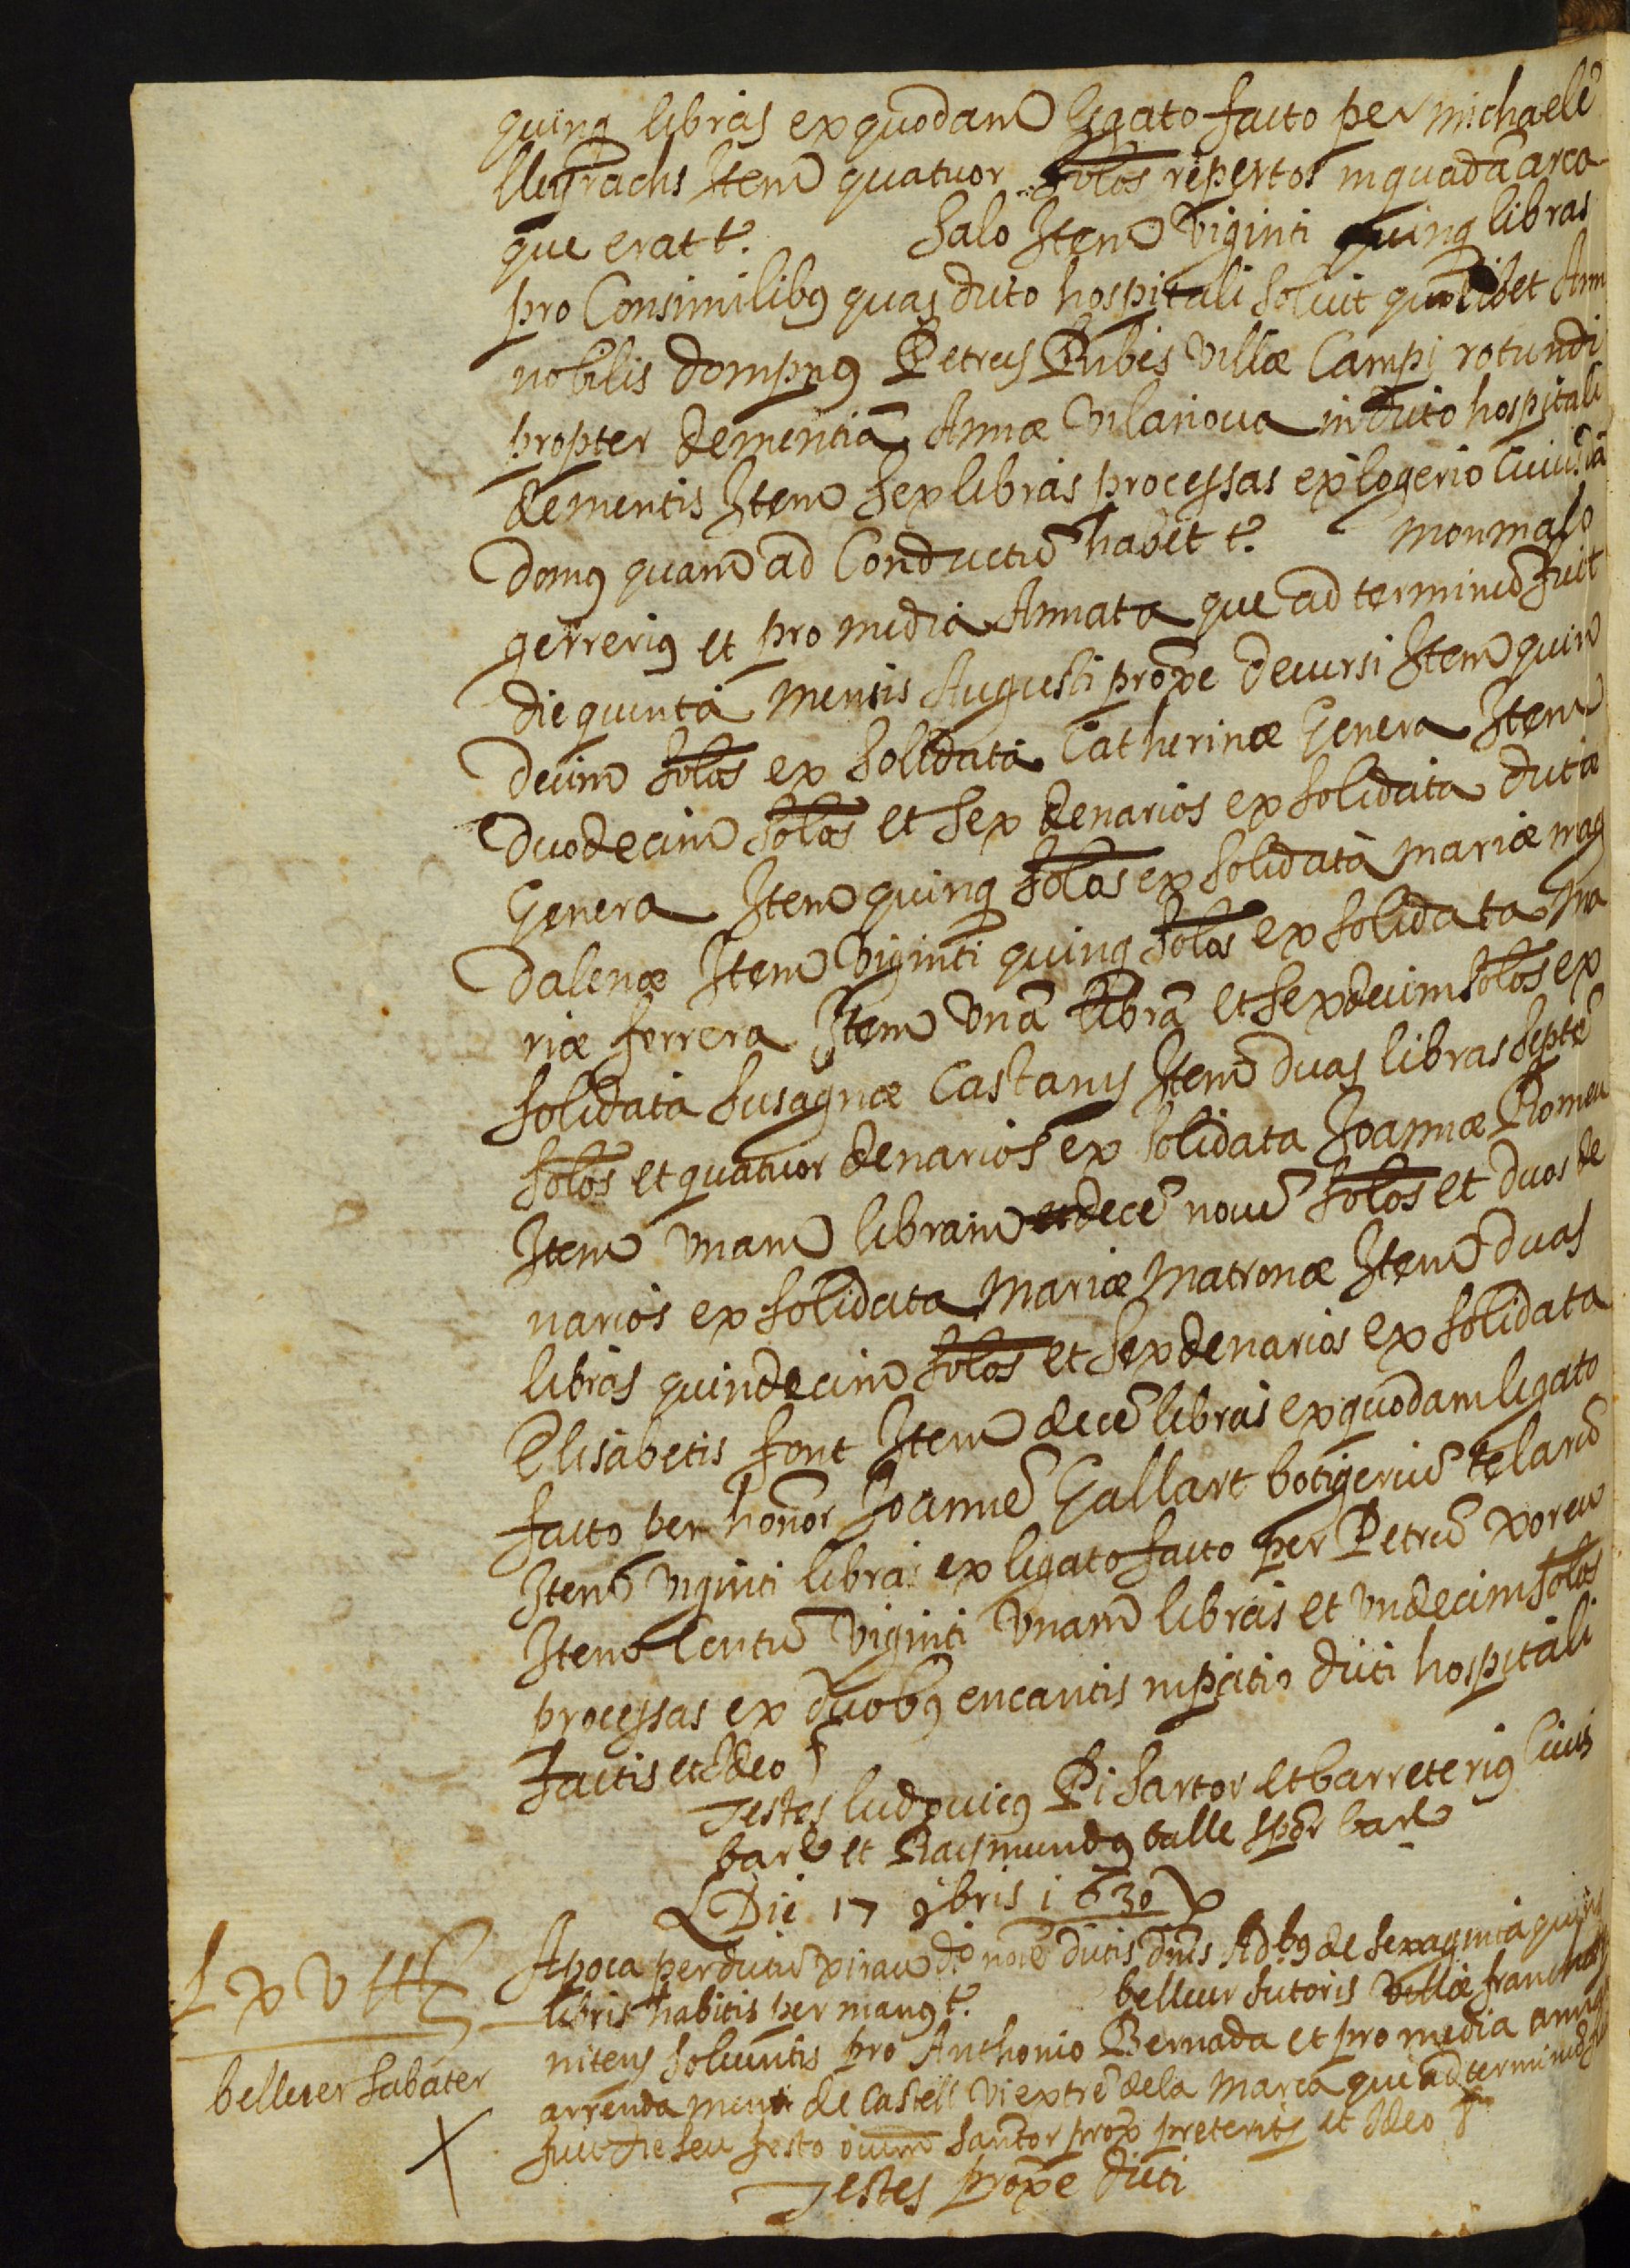 quinq libras ex quodam legato facto per michaelē
llugrachs Item quatuor solos repertos in quadā arca
que erat t. Salo Item viginti quinq libras
pro Consimilibus quas dicto hospitali soluit quolibet Ann
nobilis dompnus Petrus Ribes villæ Campi rotundi
propter dementiā Annæ vilanoua in dicto hospitali
dementis Item sex libras processas ex logerio cuiusdā
domus quam ad Conductū habet t. monmalo
gerrerius et pro media Annata que ad terminū fuit
die quinta mensis Augusti prope decursi Item quin
decim solos ex solidata Catherinæ Genera Item
duodecim solos et sex denarios ex solidata dictæ
Genera Item quinq solos ex solidata mariæ mag
dalenæ Item viginti quinq solos ex solidata Ma
riæ ferrera Item vnā librā et sexdecim solos ex
solidata Susagnæ Castanys Item duas libras septē
solos et quatuor denarios ex solidata Joannæ Romeu
Item vnam libram et decē nouē solos et duos de
narios ex solidata Mariæ Matronæ Item duas
libras quindecim solos et sex denarios ex solidata
Elisabetis font Item decē libras ex quodam legato
facto per honor Joannē Gallart botigeriū telarū
Item viginti libras ex legato facto per Petrū xoreu
Item Centū viginti vnam libras et vndecim solos
processas ex duobus encantis in patio dicti hospitali
factis et Ideo
Testes ludouicus Pi sartor et barreterius Ciuis
bar et Raymundus balle scptor bar
Die 17 9bris 1630
Apoca per dictū xirau d.o noīe dictis dnis Adbus de sexaginta quinq
libris habitis per manus t. belluer sutoris villæ franchæ
nitens soluentis pro Anthonio Bernada et pro media annua
arrendamenti de Castell vi extrē de la Marca que ad terminū
fuit die seu festo oium Sanctor prox preteritis et Ideo
Testes prope dicti
Lxv ll
belluer sabater